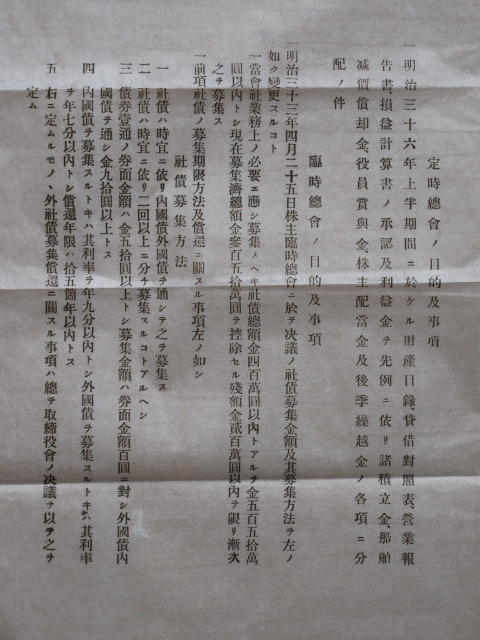 定時總會ノ目的及事項
一明治三十六年上半期間ニ於ケル財產目錄、貸借對照表、營業報
告書、損益計算書ノ承認及利益金ヲ先例ニ依リ諸積立金、船舶
減價償却金、役員賞與金、株主配當金及後季繰越金ノ各項ニ分
配ノ件
臨時總會ノ目的及事項
一明治三十三年四月二十五日株主臨時總會ニ於テ決議ノ社債募集金額及其募集方法ヲ左ノ
如ク變更スルコト
一當會社業務上ノ必要ニ應シ募集スヘキ社債總額金四百萬圓以內トアルヲ金五百五拾萬
圓以內トシ現在募集濟總額金參百五拾萬圓ヲ控除セル殘額金貳百萬圓以內ヲ限リ漸次
之ヲ募集ス
一前項社債ノ募集期限方法及償還ニ關スル事項左ノ如シ
社債募集方法
一 社債ハ時宜ニ依リ內國債外國債ヲ通シテ之ヲ募集ス
二 社債ハ時宜ニ依リ二回以上ニ分チ募集スルコトアルヘシ
三 債券壹通ノ券面金額ハ金五拾圓以上トシ募集金額ハ券面金額百圓ニ對シ外國債內
國債ヲ通シ金九拾圓以上トス
四 內國債ヲ募集スルトキハ其利率ヲ年九分以內トシ外國債ヲ募集スルトキハ其利率
ヲ年七分以內トシ償還年限ハ拾五箇年以內トス
五 右ニ定ムルモノヽ外社債募集償還ニ關スル事項ハ總テ取締役會ノ決議ヲ以テ之ヲ
定ム